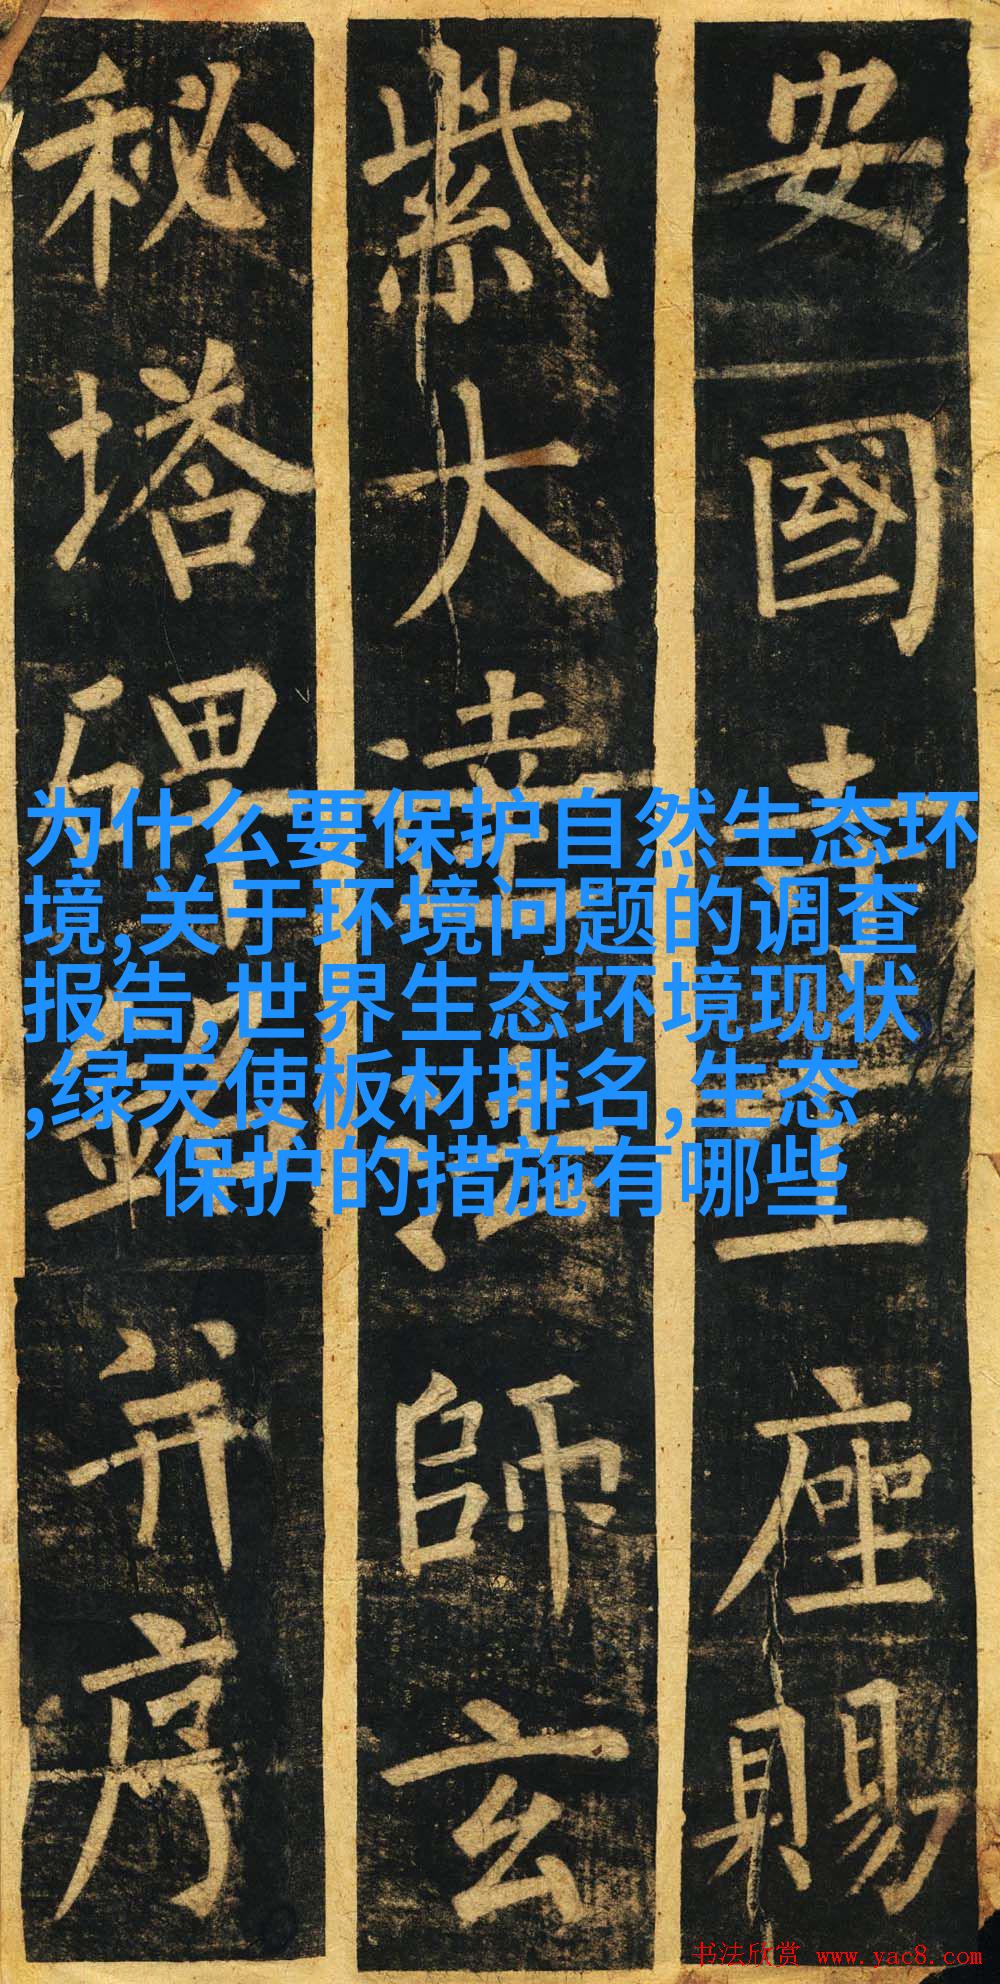 安國寺上座賜
紫大達法師玄
秘塔碑銘并序
为什么要保护自然生态环
境,关于环境问题的调查
报告,世界生态环境现状
,绿天使板材排名,生态
保护的措施有哪些
书法欣赏 www.yac8.com